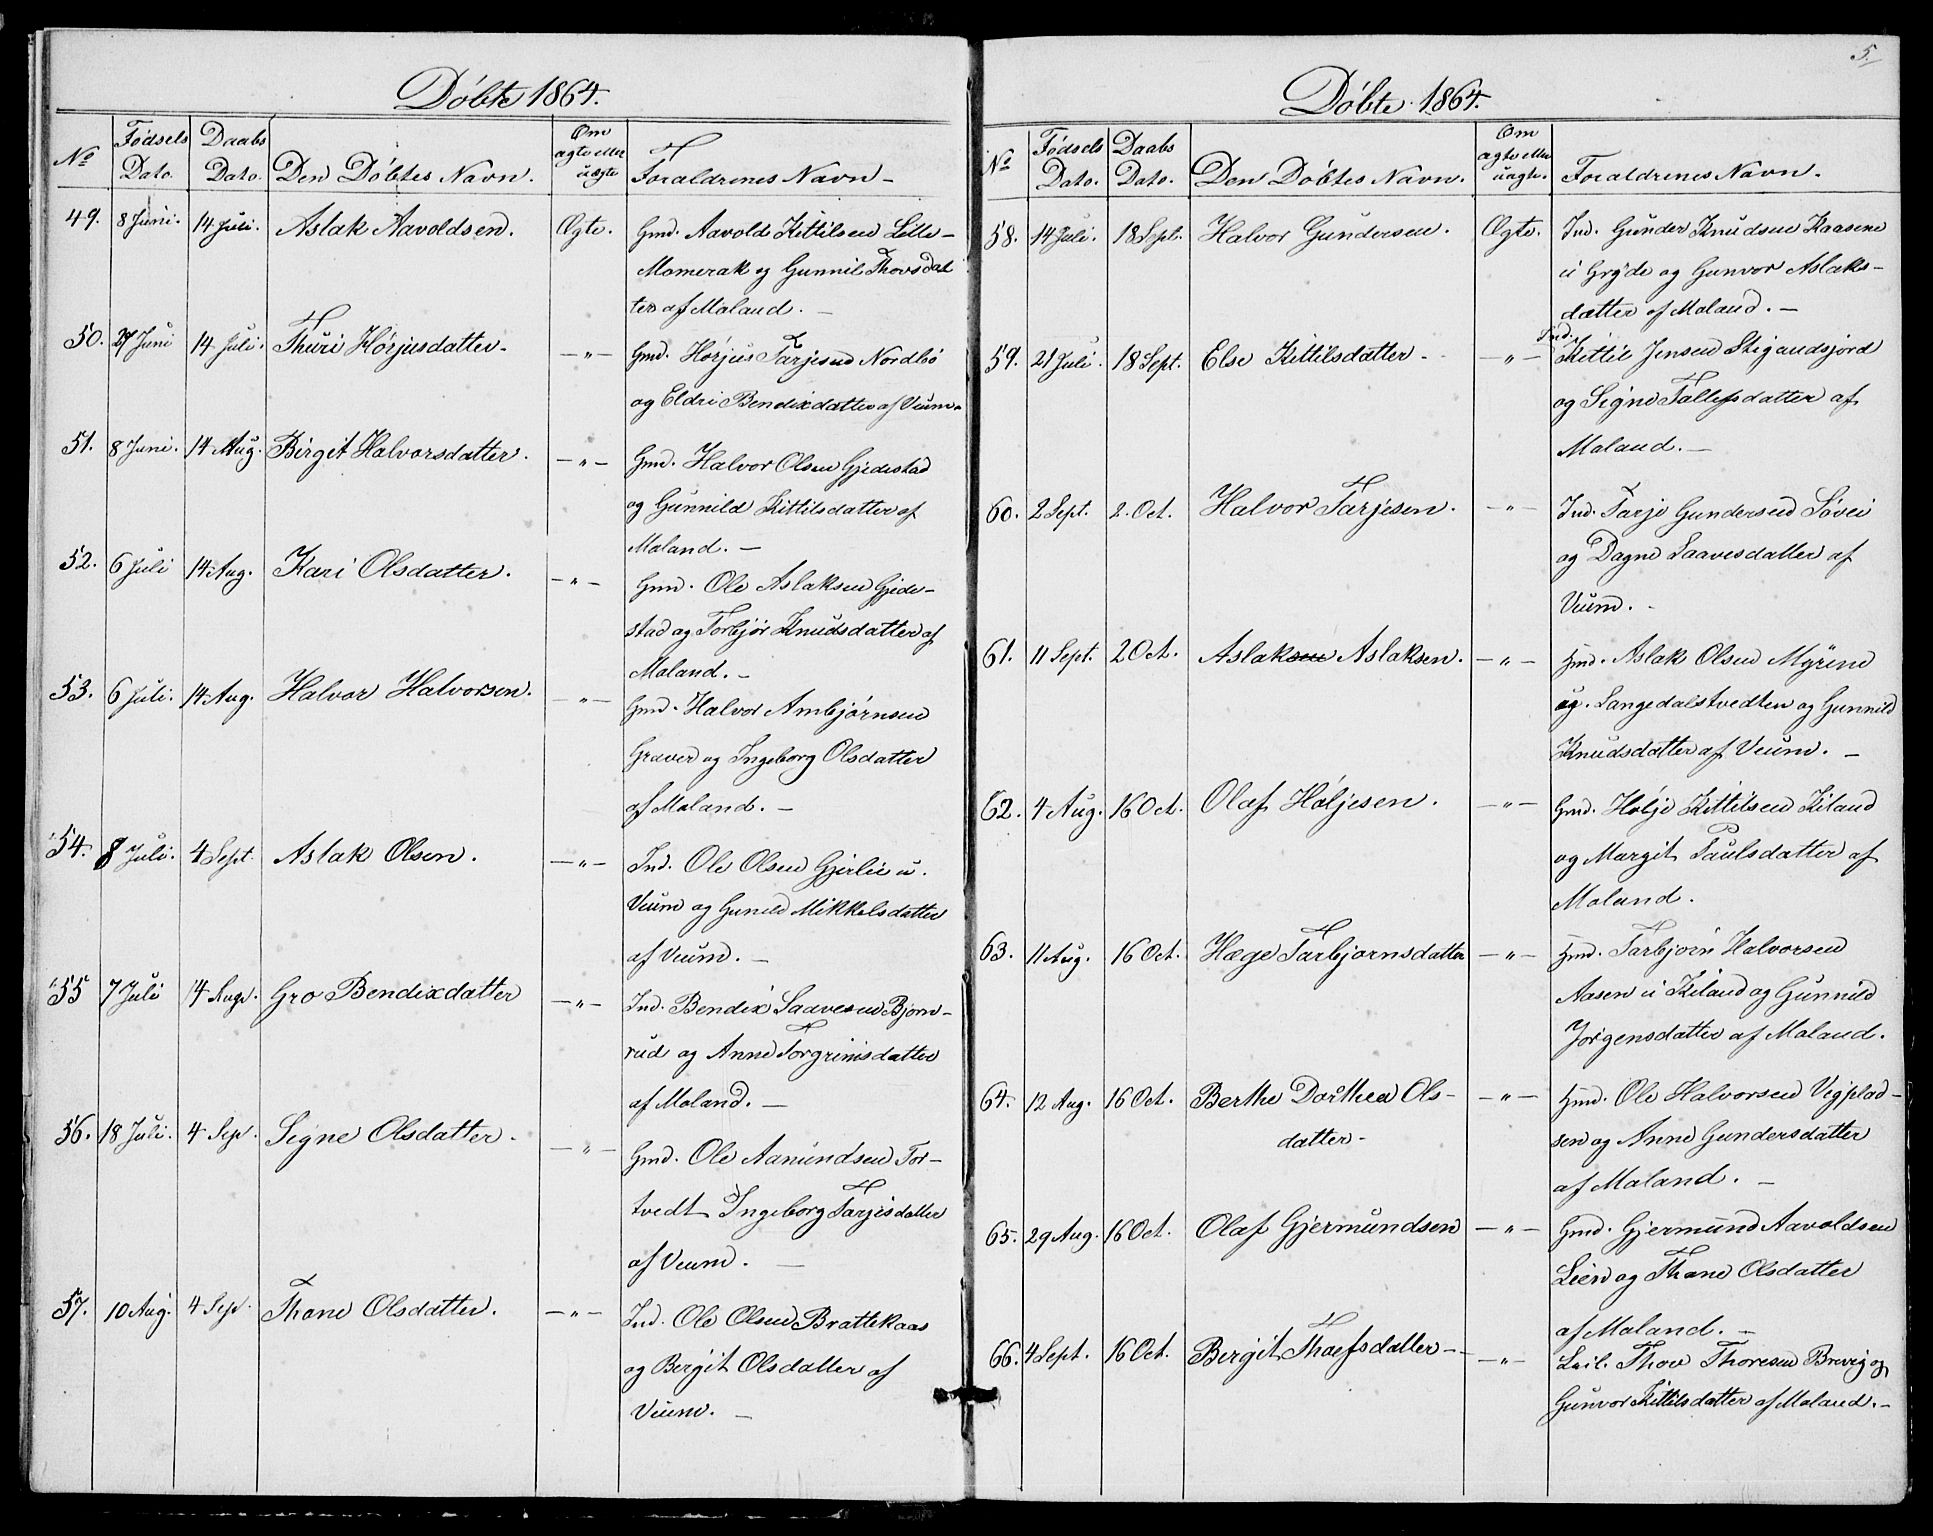 Døbte 1864.
No Fødsels Dato. Daabs Dato. Den Døbtes Navn. Om ægte eller uægte Forældrenes Navn-
49. 8 Juni. 14 Juli. Aslak Aavoldsen. Ægte. Gmd. Aavold Kittilsen Lille-
Momerak og Gunnil Thorsdat
ter af Moland. -
50. 27 Juni 14 Juli. Thuri Hørjusdatter. -"- Gmd. Hørjus Tarjesen Nordbø
og Eldri Bendixdatter af Veum.
51. 8 Juni. 14 Aug. Birgit Halvorsdatter. -"- Gmd. Halvor Olsen Gjedestad
og Gunnild Kittilsdatter af
Moland. -
52. 6 Juli 14 Aug. Kari Olsdatter. -"- Gmd. Ole Aslaksen Gjede-
stad og Torbjør Knudsdatter af
Moland. -
53. 6 Juli. 14 Aug. Halvor Halvorsen. -"- Gmd. Halvor Ambjørnsen
Graver og Ingeborg Olsdatter
af Moland. -
54. 8 Juli. 4 Sept. Aslak Olsen. -"- Ind. Ole Olsen Gjerlie u.
Veum og Gunild Mikkelsdatter
af Veum. -
55 7 Juli 14 Aug. Gro Bendixdatter -"- Ind. Bendix Saavesen Bjørn-
rud og Anne Torgrimsdatter
af Moland. -
56. 18 Juli. 4 Sep. Signe Olsdatter. -"- Gmd. Ole Aamundsen For-
tvedt Ingeborg Tarjesdatter
af Veum. -
57. 10 Aug. 4 Sep. Thone Olsdatter. -"- Ind. Ole Olsen Brattekaas
og Bergit Olsdatter af
Veum. -
5.
Døbte 1864.
No Fødsels Dato. Daabs Dato. Den Døbtes Navn. Om ægte eller uægte. Forældrenes Navn.
58. 14 Juli. 18 Sept. Halvor Gundersen. Ægte. Ind. Gunder Knudsen Kaasene
u Grýde og Gunvor Aslaks-
datter af Moland. -
59. 21 Juli. 18 Sept. Else Kittilsdatter - -"- Ind. Kittil Jensen Skigandsjord
og Signe Tallefsdatter af
Moland. -
60. 2 Sept. 2. Oct. Halvor Tarjesen. -"- Ind. Tarje Gundersen Løvei
og Dagne Saavesdatter af
Veum. -
61. 11 Sept. 2 Oct. Aslaksen Aslaksen. -"- Hmd. Aslak Olsen Mÿrene
og Langedalstvedten og Gunnild
Knudsdatter af Veum. -
62. 4 Aug. 16 Oct. Olaf Høljesen. -"- Gmd. Hølje Kittilsen Kiland
og Margit Paulsdatter af
Moland.
63. 11 Aug. 16 Oct. Hæge Tarbjørnsdatter -"- Hmd. Tarbjørn Halvorsen
Aasen u Kiland og Gunnild
Jørgensdatter af Moland.
64. 12 Aug. 16 Oct. Berthe Dorthea Ols- -"- Hmd. Ole Halvorsen Vegplad-
datter- sen og Anne Gundersdatter
af Moland. -
65. 29 Aug. 16 Oct. Olaf Gjermundsen -"- Gmd. Gjermund Aavoldsen
Lien og Thone Olsdatter
af Moland. -
66. 4 Sept. 16 Oct. Bergit Thoefsdatter- -"- Leil. Thov Thoresen Brevig og
Gunvor Kittilsdatter af Moland. -